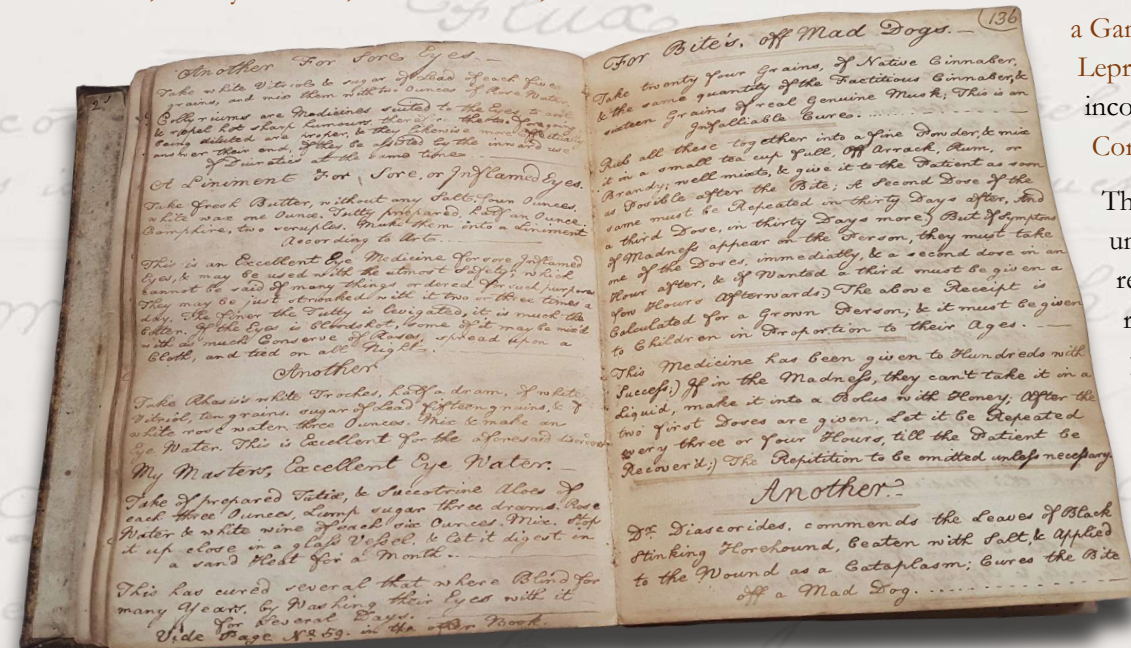 Flux
Another For Sore Eyes.
Take white Vitriol & sugar of Lead of each five
grains, and mix them with two Ounces of Rose Water.
Collyriums are Medicines suited to the Eyes to
& repel hot sharp humours, the
being diluted are proper, & they likewise more
answer their end, if they be assisted by the inward use
of Diuretics at the same time.
A Liniment For Sore, or Inflamed Eyes.
Take fresh Butter, without any Salt, four Ounces,
white wax one Ounce, Tutty prepared, half an Ounce,
Camphire, two scruples. Make them into a Liniment
According to Art.
This is an Excellent Eye Medicine for sore Inflamed
Eyes, & may be used with the utmost Safety, which
cannot be said of many things ordered for such purpose
They may be just stroaked with it two or three times a
day. The finer the Tutty is Levigated, it is much the
better. If the Eyes is bloodshot, some of it may be mix'd
with as much Conserve of Roses, spread upon a
Cloth, and tied on all Night.
Another
Take Rhasis's white Troches, half a dram, of white
Vitriol, ten grains. sugar of Lead fifteen grains, & of
white rose water three Ounces. Mix & make an
Eye Water. This is Excellent for the aforesaid
My Masters, Excellent Eye Water.
Take of prepared Tutia, & Succotrine Aloes of
each three Ounces, Lump sugar three drams. Rose
Water & white wine of each six Ounces. Mix. Stop
it up close in a glass Vessel, & let it digest in
a sand Heat for a Month.
This has cured several that where Blind for
many Years, by Washing their Eyes with it
for Several Days.
Vide Page No. 59. in the other Book.
136
For Bite's, off Mad Dogs.
Take twenty four Grains, of Native Cinnaber,
& the same quantity of the Factitious Cinnaber, &
sixteen Grains of real Genuine Musk; This is an
Infalliable Cure.
Rub all these together into a fine Powder, & mix
it in a small tea cup full, off Arrack, Rum, or
Brandy; well mixt, & give it to the Patient as soon
as Posible after the Bite; A Second Dose of the
same must be Repeated in thirty Days after, And
a third Dose, in thirty Days more; But if Symptoms
of Madness appear on the Person, they must take
one of the Doses, immediately, & a second dose in an
Hour after, & if Wanted a third must be given a
few Hours Afterwards:) The above Receipt is
Calculated for a Grown Person; & it must be given
to Children in Proportion to their Ages.
This Medicine has been given to Hundreds with
Success:) If in the Madness, they can't take it in a
Liquid, make it into a Bolus with Honey; After the
two first Doses are given, Let it be Repeated
every three or four Hours, till the Patient be
Recover'd:) The Repitition to be omitted unless necessary.
Another
Dr. Diascorides, commends the Leaves of Black
Stinking Horehound, beaten with Salt, & Applied
to the Wound as a Cataplasm; Cures the Bite
off a Mad Dog.
a Gar
Lepr
inco
Cor
Th
un
re
r